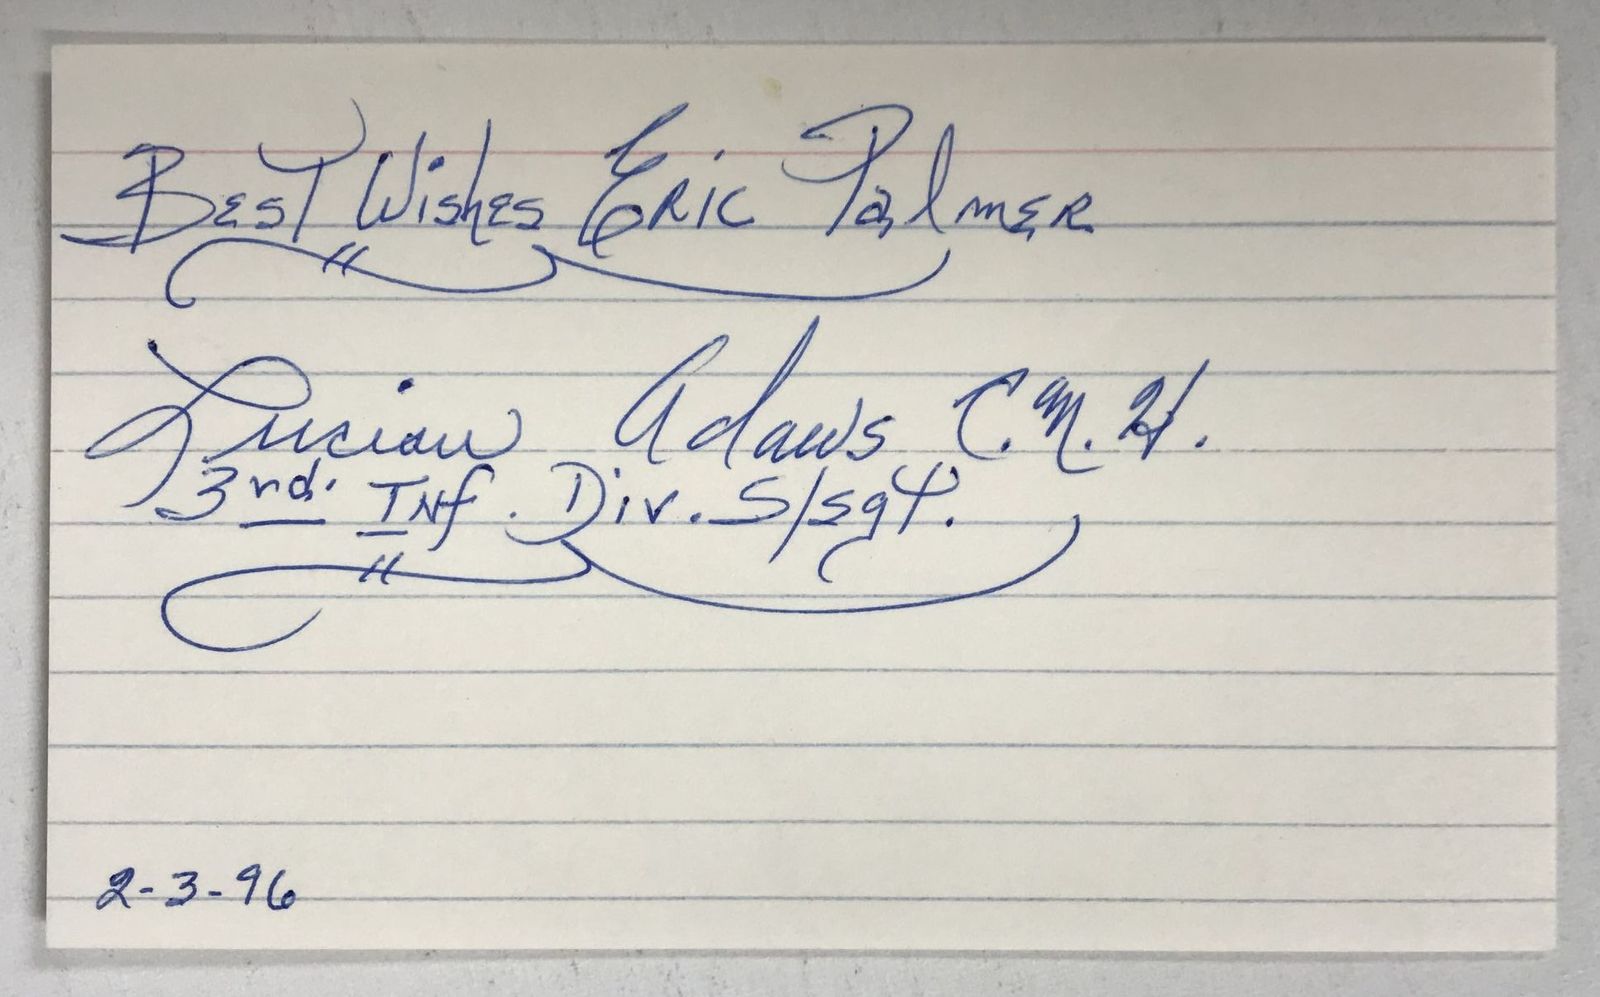 Best Wishes Eric Palmer
Lucian Adams C.M.H.
3rd. Inf. Div. S/sgt.
2-3-96